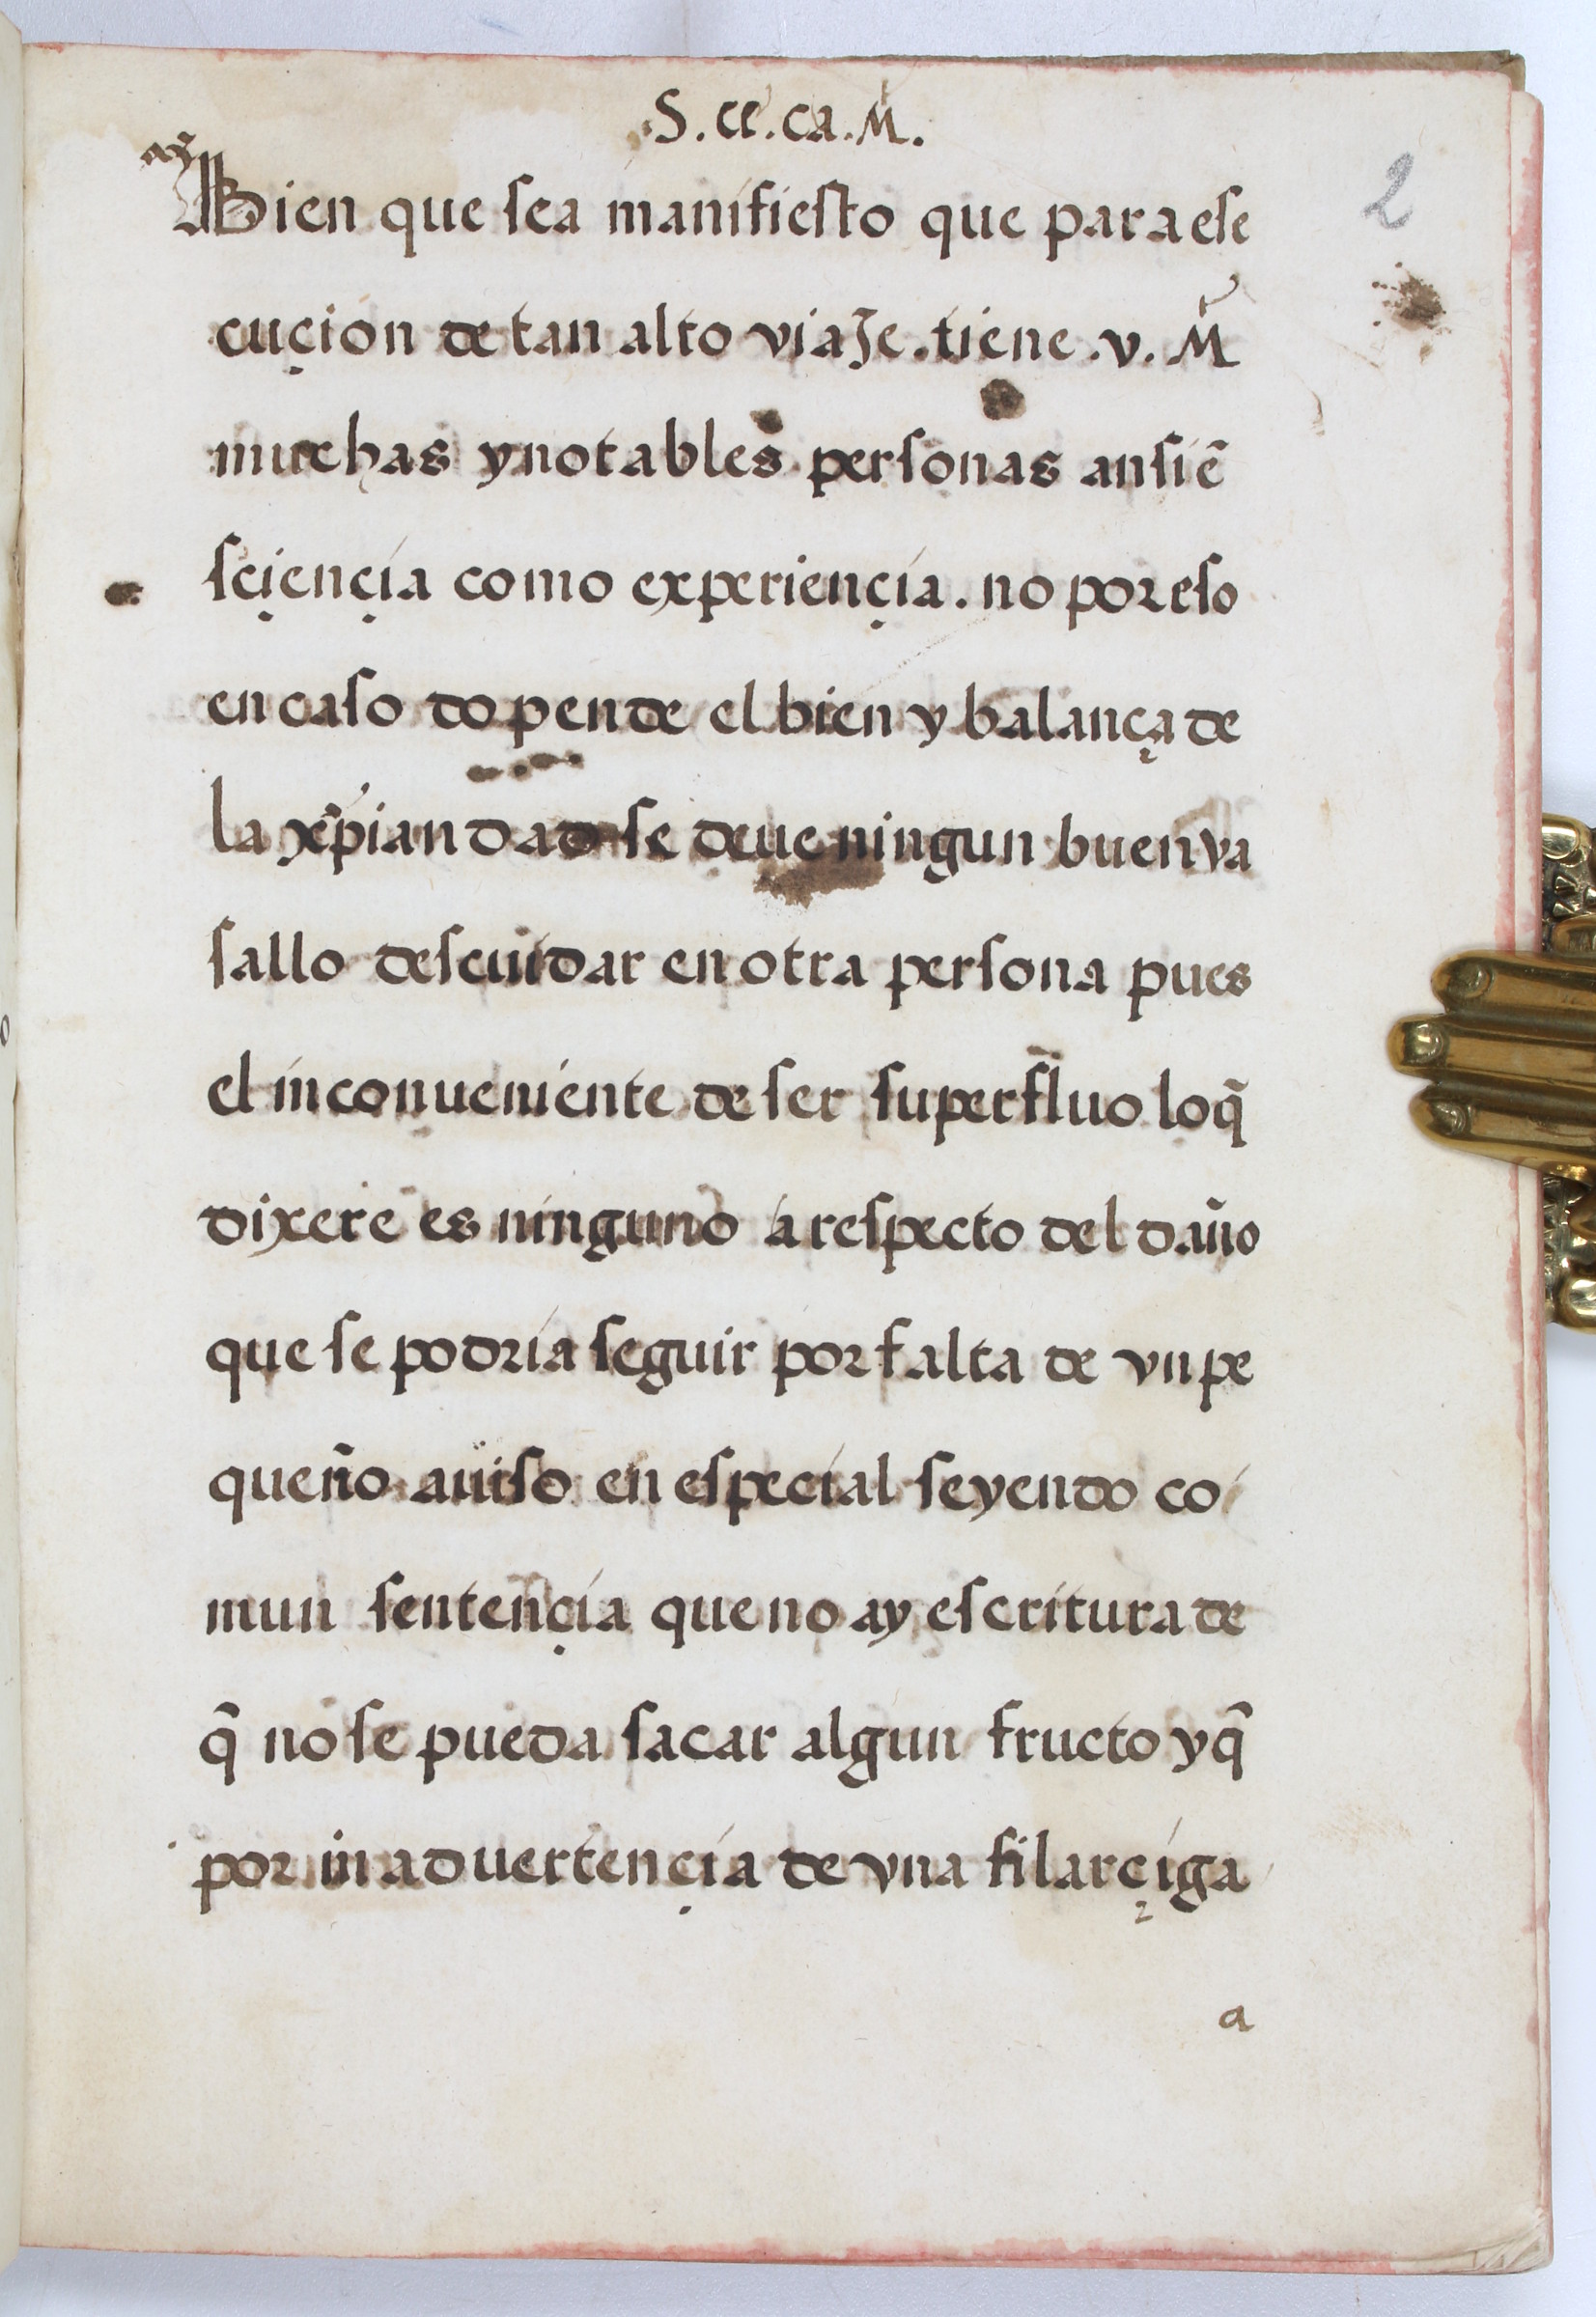 S. cc. ca. M.
2
Bien que sea manifiesto que para ese
cuçion de tan alto viaJe. tiene .v. M
muchas y notables personas ansi ẽ
sçiençia como experiençia. no por eso
en caso do pende el bien y balança de
la xp̃iandad se deue ningun buen va
sallo descuidar en otra persona pues
el inconueniente de ser superfluo lo q̃
dixere es ninguno a respecto del daño
que se podria seguir por falta de vn pe
queño auiso en especial seyendo co
mun sentençia que no ay escritura de
q̃ no se pueda sacar algun fructo y q̃
por inaduertençia de vna filarçiga
a